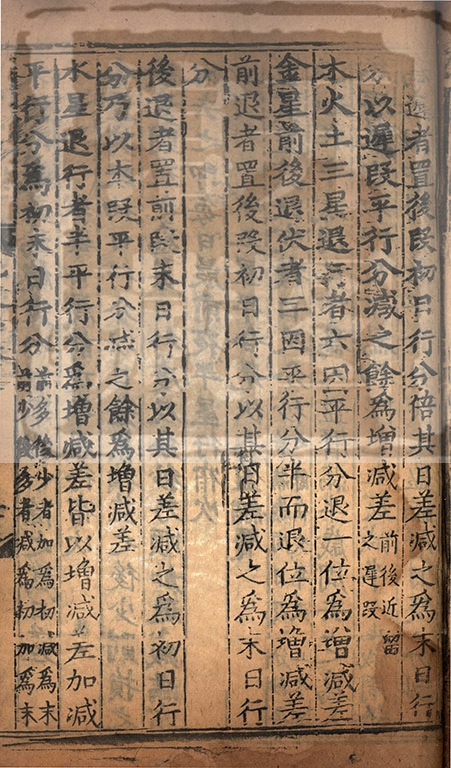 遲者置後段初日行分倍其日差減之爲末日行
分以遲段平行分減之餘爲增減差前後近留之遲段
木火土三星退行者六因平行分退一位爲增減差
金星前後退伏者三因平行分半而退位爲增減差
前退者置後段初日行分以其日差減之爲末日行
分
後退者置前段末日行分以其日差減之爲初日行
分乃以本段平行分減之餘爲增減差
水星退行者半平行分爲增減差皆以增減差加減
平行分爲初末日行分前多後少者加爲初減爲末前少後多者減爲初加爲末